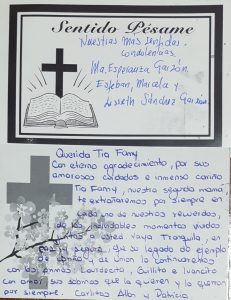 Sentido Pésame
Nuestras más sentidas
condolencias.
Ma. Esperanza Garzón,
Esteban, Marcela y
Lisseth Sánchez Garzón
Querida Tia Fanny
Con eterno agradecimiento, por sus
amorosos cuidados e inmenso cariño
Tia Fanny, nuestra segunda mamá,
te extrañaremos por siempre en
cada uno de nuestros recuerdos,
de los inolvidables momentos vividos
en tu casa. Vaya tranquila, en
paz y segura, que su legado de ejemplo
de y de unión lo continuaremos
con los primos
Con amor sus sobrinos que la quieren y la querran
por siempre. Carlitos Alba y Patricia